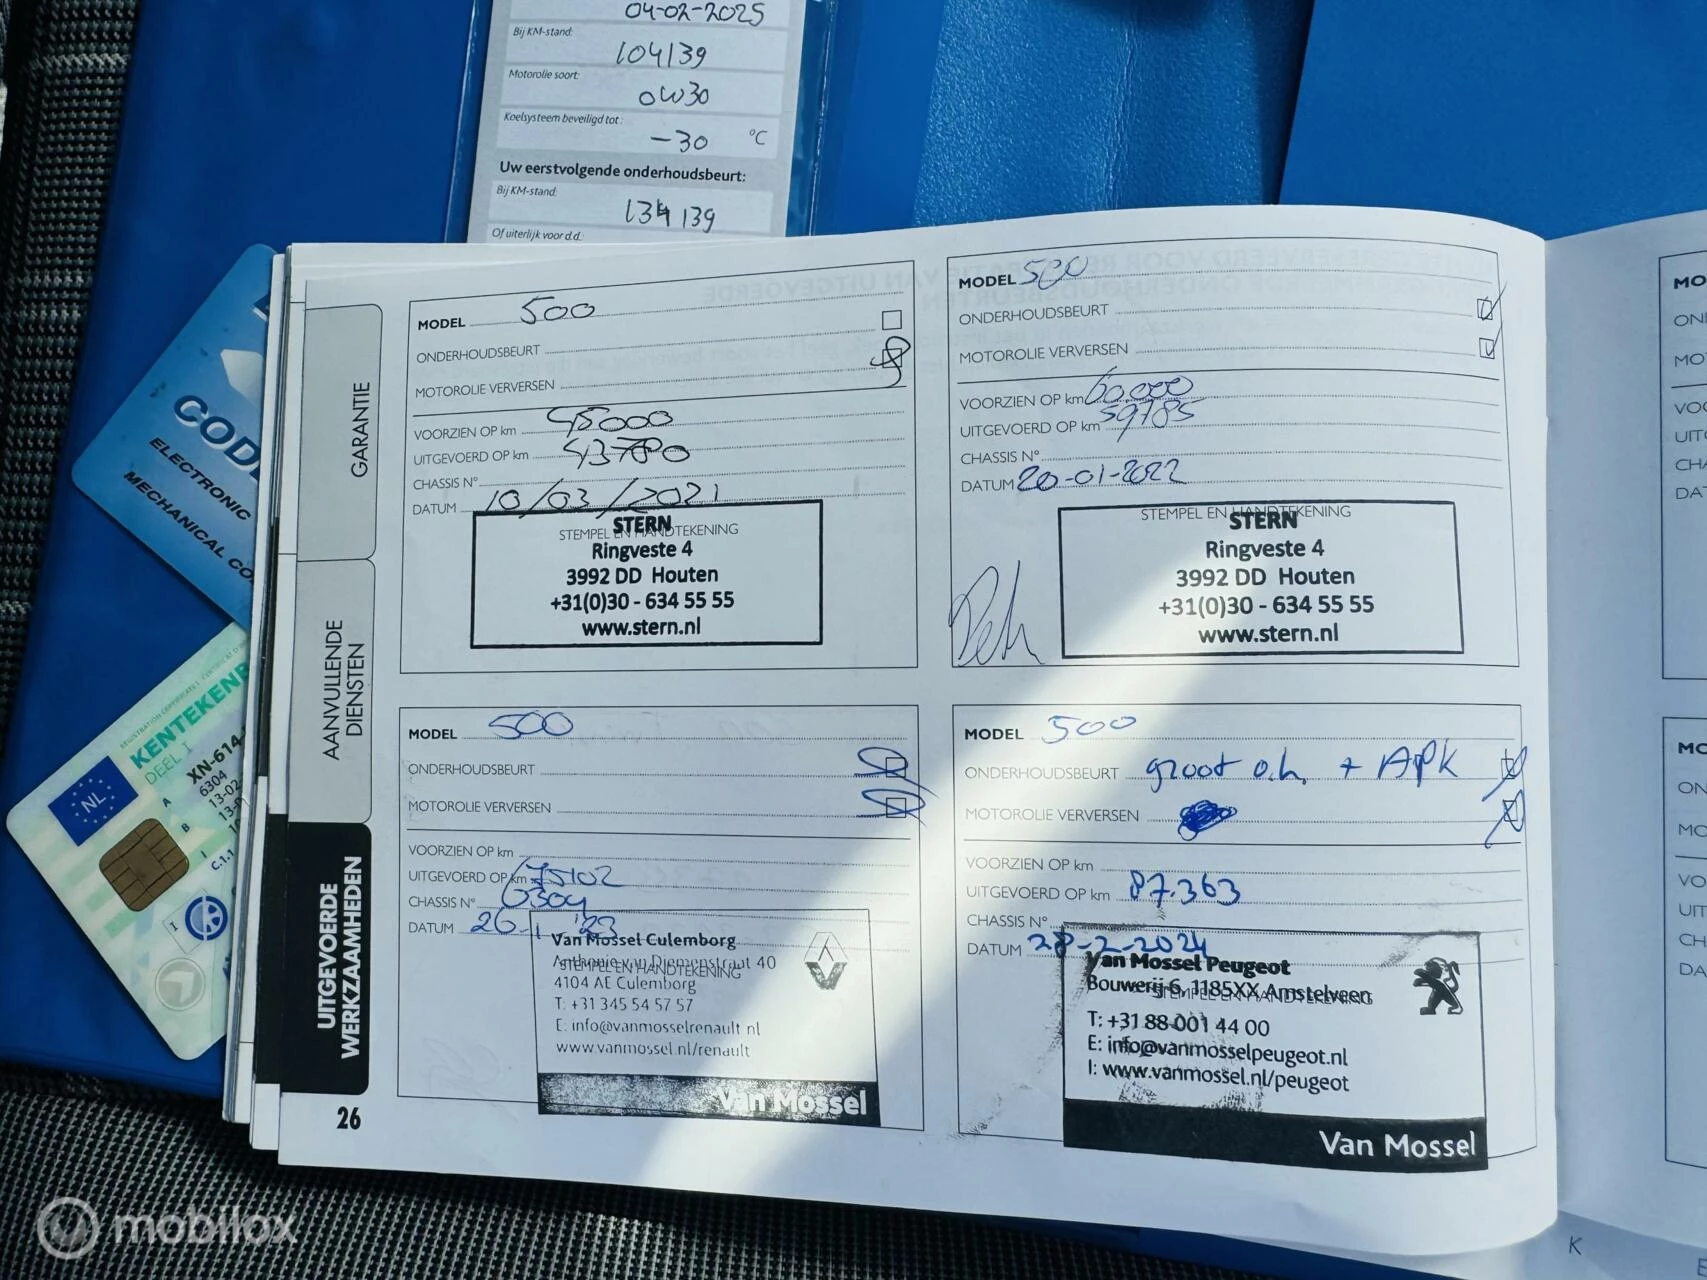 04-02-2025
Bij KM-stand:
104139
Motorolie soort:
0W30
Koelsysteem beveiligd tot:
-30 °C
Uw eerstvolgende onderhoudsbeurt:
Bij KM-stand:
134139
Of uiterlijk voor d.d.:
CODE
ELECTRONIC
MECHANICAL CO
REGISTRATION CERTIFICATE
KENTEKENB
DEEL I
NL
XN-614
6304
A
13-02
B
I
C.1.1
GARANTIE
AANVULLENDE
DIENSTEN
UITGEVOERDE
WERKZAAMHEDEN
26
MODEL 500
ONDERHOUDSBEURT
MOTOROLIE VERVERSEN
VOORZIEN OP km 45000
UITGEVOERD OP km 43780
CHASSIS N°
DATUM 10/03/2021
STEMPEL EN HANDTEKENING
STERN
Ringveste 4
3992 DD Houten
+31(0)30 - 634 55 55
www.stern.nl
MODEL 500
ONDERHOUDSBEURT
MOTOROLIE VERVERSEN
VOORZIEN OP km 60.000
UITGEVOERD OP km 59785
CHASSIS N°
DATUM 20-01-2022
STEMPEL EN HANDTEKENING
STERN
Ringveste 4
3992 DD Houten
+31(0)30 - 634 55 55
www.stern.nl
MODEL 500
ONDERHOUDSBEURT
MOTOROLIE VERVERSEN
VOORZIEN OP km
UITGEVOERD OP km 75102
CHASSIS N° 6304
DATUM 26-1 '23
Van Mossel Culemborg
Anthonie van Diemenstraat 40
STEMPEL EN HANDTEKENING
4104 AE Culemborg
T: +31 345 54 57 57
E: info@vanmosselrenault.nl
www.vanmossel.nl/renault
Van Mossel
MODEL 500
ONDERHOUDSBEURT groot o.h. + APK
MOTOROLIE VERVERSEN
VOORZIEN OP km
UITGEVOERD OP km 87.363
CHASSIS N°
DATUM 28-2-2024
Van Mossel Peugeot
Bouwerij 6, 1185XX Amstelveen
STEMPEL EN HANDTEKENING
T: +31 88 001 44 00
E: info@vanmosselpeugeot.nl
I: www.vanmossel.nl/peugeot
Van Mossel
MO
ON
MO
VO
UIT
CH
DA
MO
ON
MO
VO
UIT
CH
DA
K
mobilox